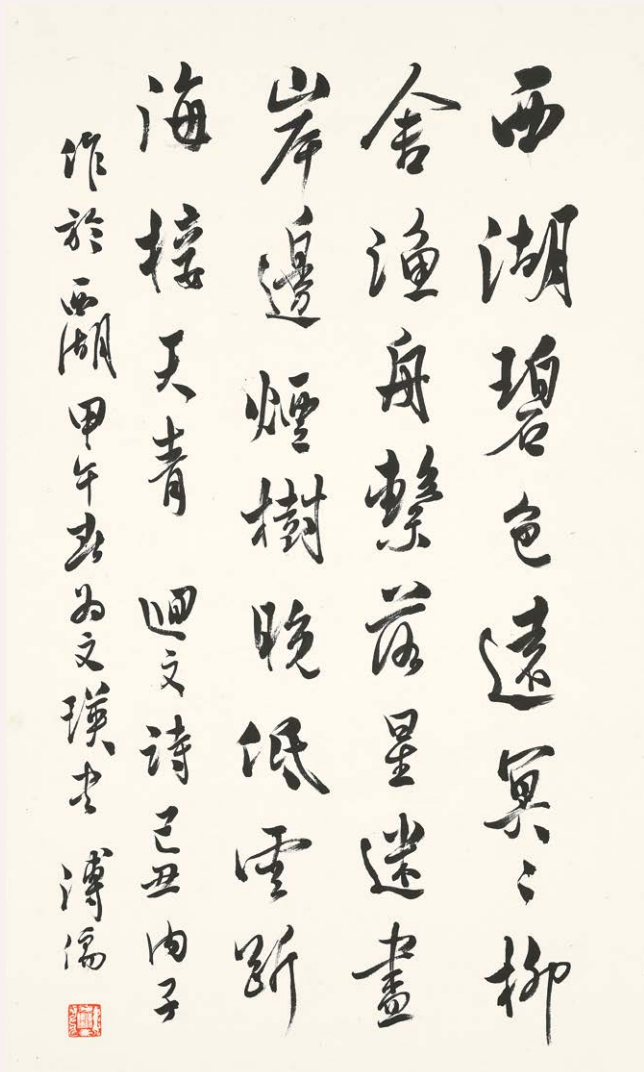 西湖碧色遠冥〻柳
舍漁舟繫落星迷畫
岸邊煙樹晚低雲斷
海接天青 迴文詩己丑內子
作於西湖甲午春為文瑛書 溥儒